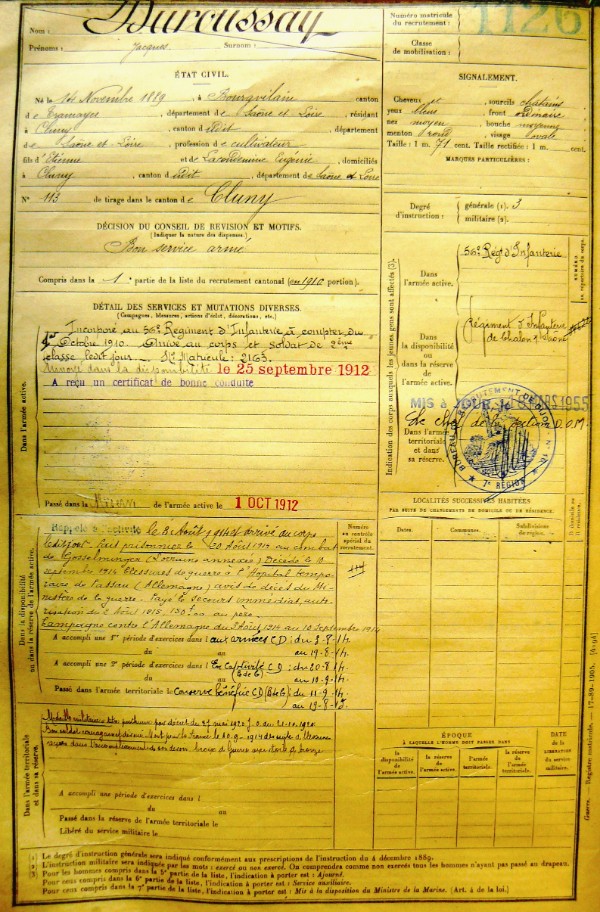 Nom : Ducussay
Numéro matricule du recrutement : 1126
Prénoms : Jacques Surnom :
Classe de mobilisation :
ÉTAT CIVIL.
Né le 14 Novembre 1889, à Bourgvilain canton
de Tramayes, département de Saône et Loire, résidant
à Cluny, canton du dit, département
de Saône et Loire, profession de cultivateur
fils d'Etienne et de Lacondemine Eugénie, domiciliés
à Cluny, canton du dit, département de Saône et Loire
N° 113 de tirage dans le canton de Cluny
SIGNALEMENT.
Cheveux et sourcils châtains
yeux bleus front ordinaire
nez moyen bouche moyenne
menton rond visage ovale
Taille : 1 m. 71 cent. Taille rectifiée : 1 m. cent.
MARQUES PARTICULIÈRES :
Degré d'instruction : générale (1). 3
militaire (2).
DÉCISION DU CONSEIL DE REVISION ET MOTIFS.
(Indiquer la nature des dispenses.)
Bon service armé
Compris dans la 1e partie de la liste du recrutement cantonal (de 1910 portion).
DÉTAIL DES SERVICES ET MUTATIONS DIVERSES.
(Campagnes, blessures, actions d'éclat, décorations, etc.)
Dans l'armée active.
Incorporé au 56e Régiment d'Infanterie à compter du
1er Octobre 1910. Arrivé au corps et soldat de 2ème
classe ledit jour. N° Matricule : 2165.
le 25 septembre 1912
A reçu un certificat de bonne conduite
Passé dans la réserve de l'armée active le 1 OCT 1912
Indication des corps auxquels les jeunes gens sont affectés (3).
Dans l'armée active.
56e Régt d'Infanterie
Dans la disponibilité ou dans la réserve de l'armée active.
Régiment d'Infanterie
de Chalon s/ Saône
MIS à JOUR, le MARS 1955
Dans l'armée territoriale et dans sa réserve.
7e RÉGION
LOCALITÉS SUCCESSIVES HABITÉES
PAR SUITE DE CHANGEMENTS DE DOMICILE OU DE RÉSIDENCE.
Dates. Communes. Subdivisions de région. D domicile ou R résidence.
Dans la disponibilité ou dans la réserve de l'armée active.
Numéro au contrôle spécial du recrutement.
Rappelé à l'activité le 3 Août 1914 et arrivé au corps
ledit jour. Fait prisonnier le 20 Août 1914 au combat
de Gosselminger (Lorraine annexée) Décédé le 10
septembre 1914 Blessures de guerre à l'Hôpital tempo-
raire de Passau (Allemagne) avis de décès du Mi-
nistère de la guerre. Payé le secours immédiat
Campagne contre l'Allemagne du 3 Août 1914 au 10 septembre 1914
A accompli une 1re période d'exercices dans l aux armées CD : du 3-8-14
du au au 19-8-14
A accompli une 2e période d'exercices dans l En Captivité CD : du 20-8-14
du au au 10-9-14
Passé dans l'armée territoriale le Conserve bénéfice CD : du 11-9-14
Dans l'armée territoriale et dans sa réserve.
A accompli une période d'exercices dans l
du au
Passé dans la réserve de l'armée territoriale le
Libéré du service militaire le
ÉPOQUE
À LAQUELLE L'HOMME DOIT PASSER DANS
la disponibilité de l'armée active. la réserve de l'armée active. l'armée territoriale. la réserve de l'armée territoriale.
DATE DE LA LIBÉRATION du service militaire.
(1) Le degré d'instruction générale sera indiqué conformément aux prescriptions de l'instruction du 4 décembre 1889.
(2) L'instruction militaire sera indiquée par les mots : exercé ou non exercé. On comprendra comme non exercés tous les hommes n'ayant pas passé au drapeau.
(3) Pour les hommes compris dans la 5e partie de la liste, l'indication à porter est : Ajourné.
Pour ceux compris dans la 6e partie de la liste, l'indication à porter est : Service auxiliaire.
Pour ceux compris dans la 7e partie de la liste, l'indication à porter est : Mis à la disposition du Ministre de la Marine. (Art. 4 de la loi.)